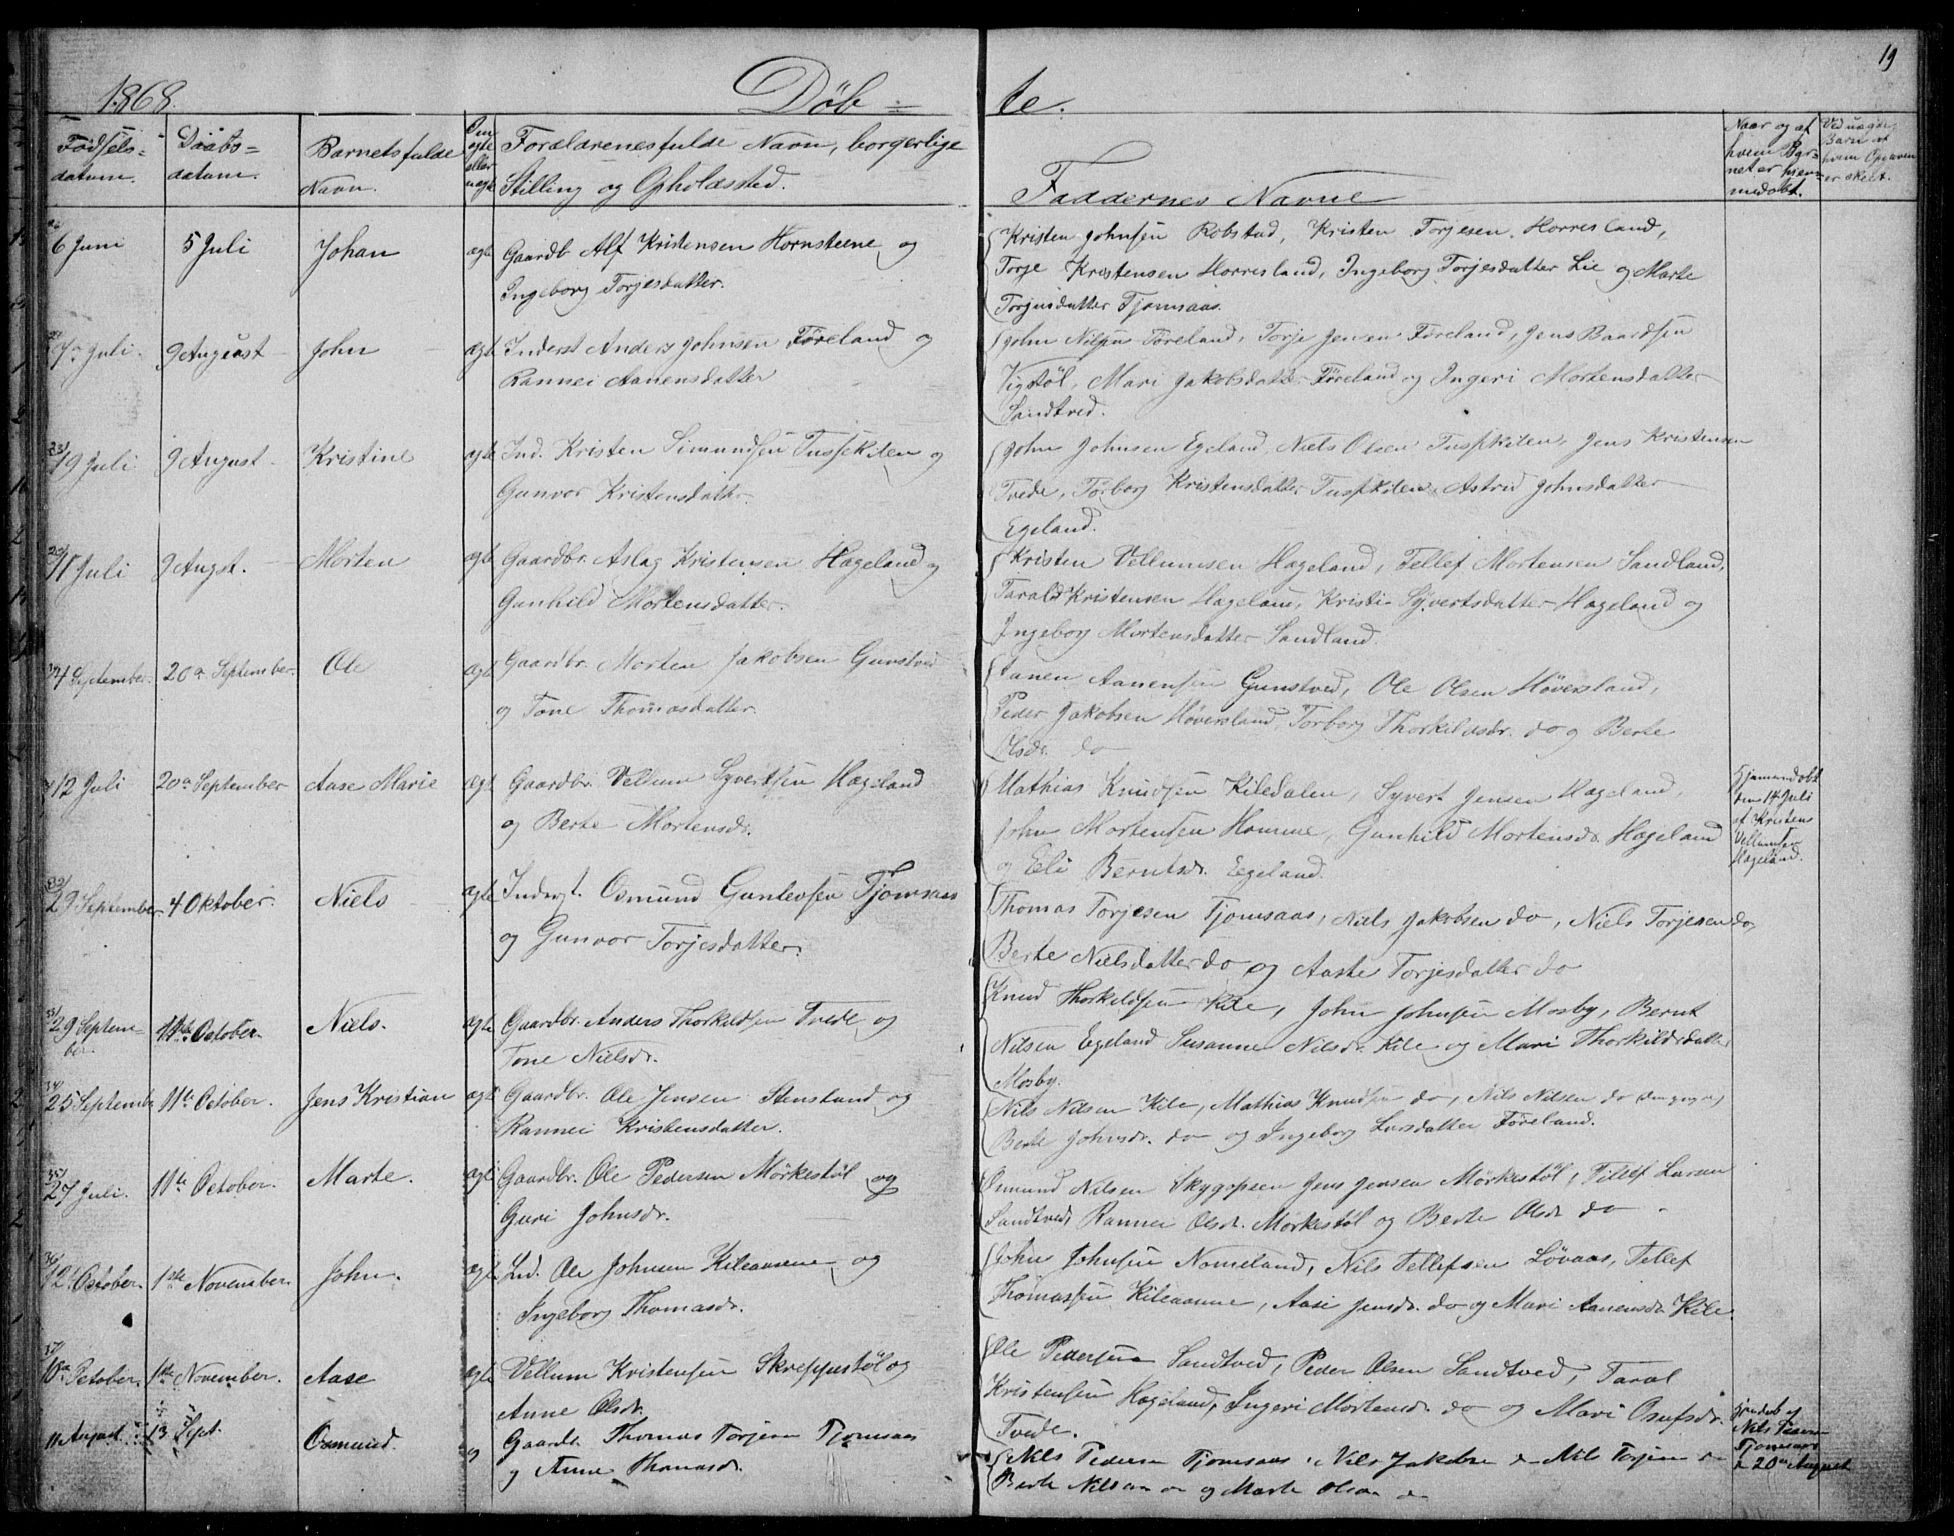 1868.
Döb=
te.
19
Födsels=
datum.
Daabs=
datum.
Barnets fulde
Navn.
Om
ægte
eller
uægte
Forældrenes fulde Navn, borgerlige
Stilling og Opholdssted.
Faddernes Navne
Naar og af
hvem Bar=
net er hjem=
medøbt.
Ved uægte
Barn at
hvem Opgaven
er skeet.
6 Juni 5 Juli Johan ægte Gaardb. Alf Kristensen Hornsteene og
Ingeborg Torjesdatter.
Kristen Johnsen Robstad, Kristen Torjesen Horresland,
Torje Kristensen Horresland, Ingeborg Torjesdatter Lie og Marte
Torjusdatter Tjomsaas.
7de Juli. 9 August John ægte Inderst Anders Johnsen Föreland og
Rannei Aanensdatter
John Nilsen Föreland, Torje Jensen Föreland, Jens Baardsen
Vigstöl, Mari Jakobsdatter Föreland og Ingeri Mortensdatter
Sandtved.
19 Juli 9 August Kristine ægte Ind. Kristen Simundsen Tussekilen og
Gunvor Kristensdatter.
John Johnsen Egeland, Niels Olsen Tusskilen, Jens Kristensen
Tvede, Torborg Kristensdatter Tusskilen, Astrid Johnsdatter
Egeland.
11 Juli 9 Augst. Morten ægte Gaardbr. Aslag Kristensen Hægeland og
Gunhild Mortensdatter.
Kristen Vellumsen Hægeland, Tellef Mortensen Sandland,
Tarald Kristensen Hægeland, Kristi Syvertsdatter Hægeland og
Ingeborg Mortensdatter Sandland.
4 September. 20de September. Ole ægte Gaardbr. Morten Jakobsen Gunstved
og Tone Thomasdatter.
Aanen Aanensen Gunstved, Ole Olsen Höversland,
Peder Jakobsen Höversland, Torborg Thorkildsdr. do og Berte
Olsdr. do
12 Juli 20de September Aase Marie ægt Gaardbr. Vellum Syvertsen Hægeland
og Berte Mortensdr.
Mathias Knudsen Kiledalen, Syvert Jensen Hægeland,
John Mortensen Homme, Gunhild Mortensdr. Hægeland
og Eli Berntsdr. Egeland.
Hjemmedöbt
den 14 Juli
af Kristen
Vellumsen
Hægeland.
29 September 4 Oktober. Niels ægte Inderst. Osmund Gunlevsen Tjomsaas
og Gunvor Torjesdatter.
Thomas Torjesen Tjomsaas, Niels Jakobsen do, Niels Torjesen do,
Berte Nielsdatter do og Aaste Torjesdatter do
29 Septem=
ber. 11te October. Niels. ægte Gaardbr. Anders Thorkildsen Tvede og
Tone Nielsdr.
Knud Thorkildsen Kile, John Johnsen Mosby, Bernt
Nilsen Egeland Susanne Nilsdr. Kile og Mari Thorkildsdatter
Mosby.
25 Septembr 11te October. Jens Kristian ægte Gaardbr. Ole Jensen Stensland og
Rannei Kristensdatter.
Nils Nilsen Kile, Mathias Knudsen do, Nils Nilsen do (den yngre)
Berte Johnsdr. do og Ingeborg Larsdatter Föreland.
27 Juli. 11te October. Marte. ægte Gaardbr. Ole Pedersen Mörkestöl og
Guri Johnsdr.
Osmund Nilsen Jens Jensen Mörkestöl, Tellef Larsen
Sandtved, Rannei Olsdr. Mörkestöl og Berte Olsdr do
12 October. 1ste November. John. ægte Ind. Ole Johnsen Kileaanne og
Ingeborg Thomasdr.
John Johnsen Nomeland, Nils Tellefsen Lövaas, Tellef
Thomassen Kileaanne, Aase Jensdr. do og Mari Aanensdr Kile.
October. 1ste November. Aase ægte Vellum Kristensen Skreppustöl og
Anne Olsdr.
Ole Pedersen Sandtved, Peder Olsen Sandtved, Taral
Kristensen Hægeland, Ingeri Mortensdr. do og Mari Osufsdr.
Tvede.
11 August 13 Sept. Osmund. Gaardb. Thomas Torjesen Tjomsaas
og Anne Thomasdr.
Nils Pedersen Tjomsaas, Nils Jakobsen Nils Torjesen
Berte Nilsen og Marte Olsen
Hjemdøb af
Nils
Tjomsaas
d 20de August